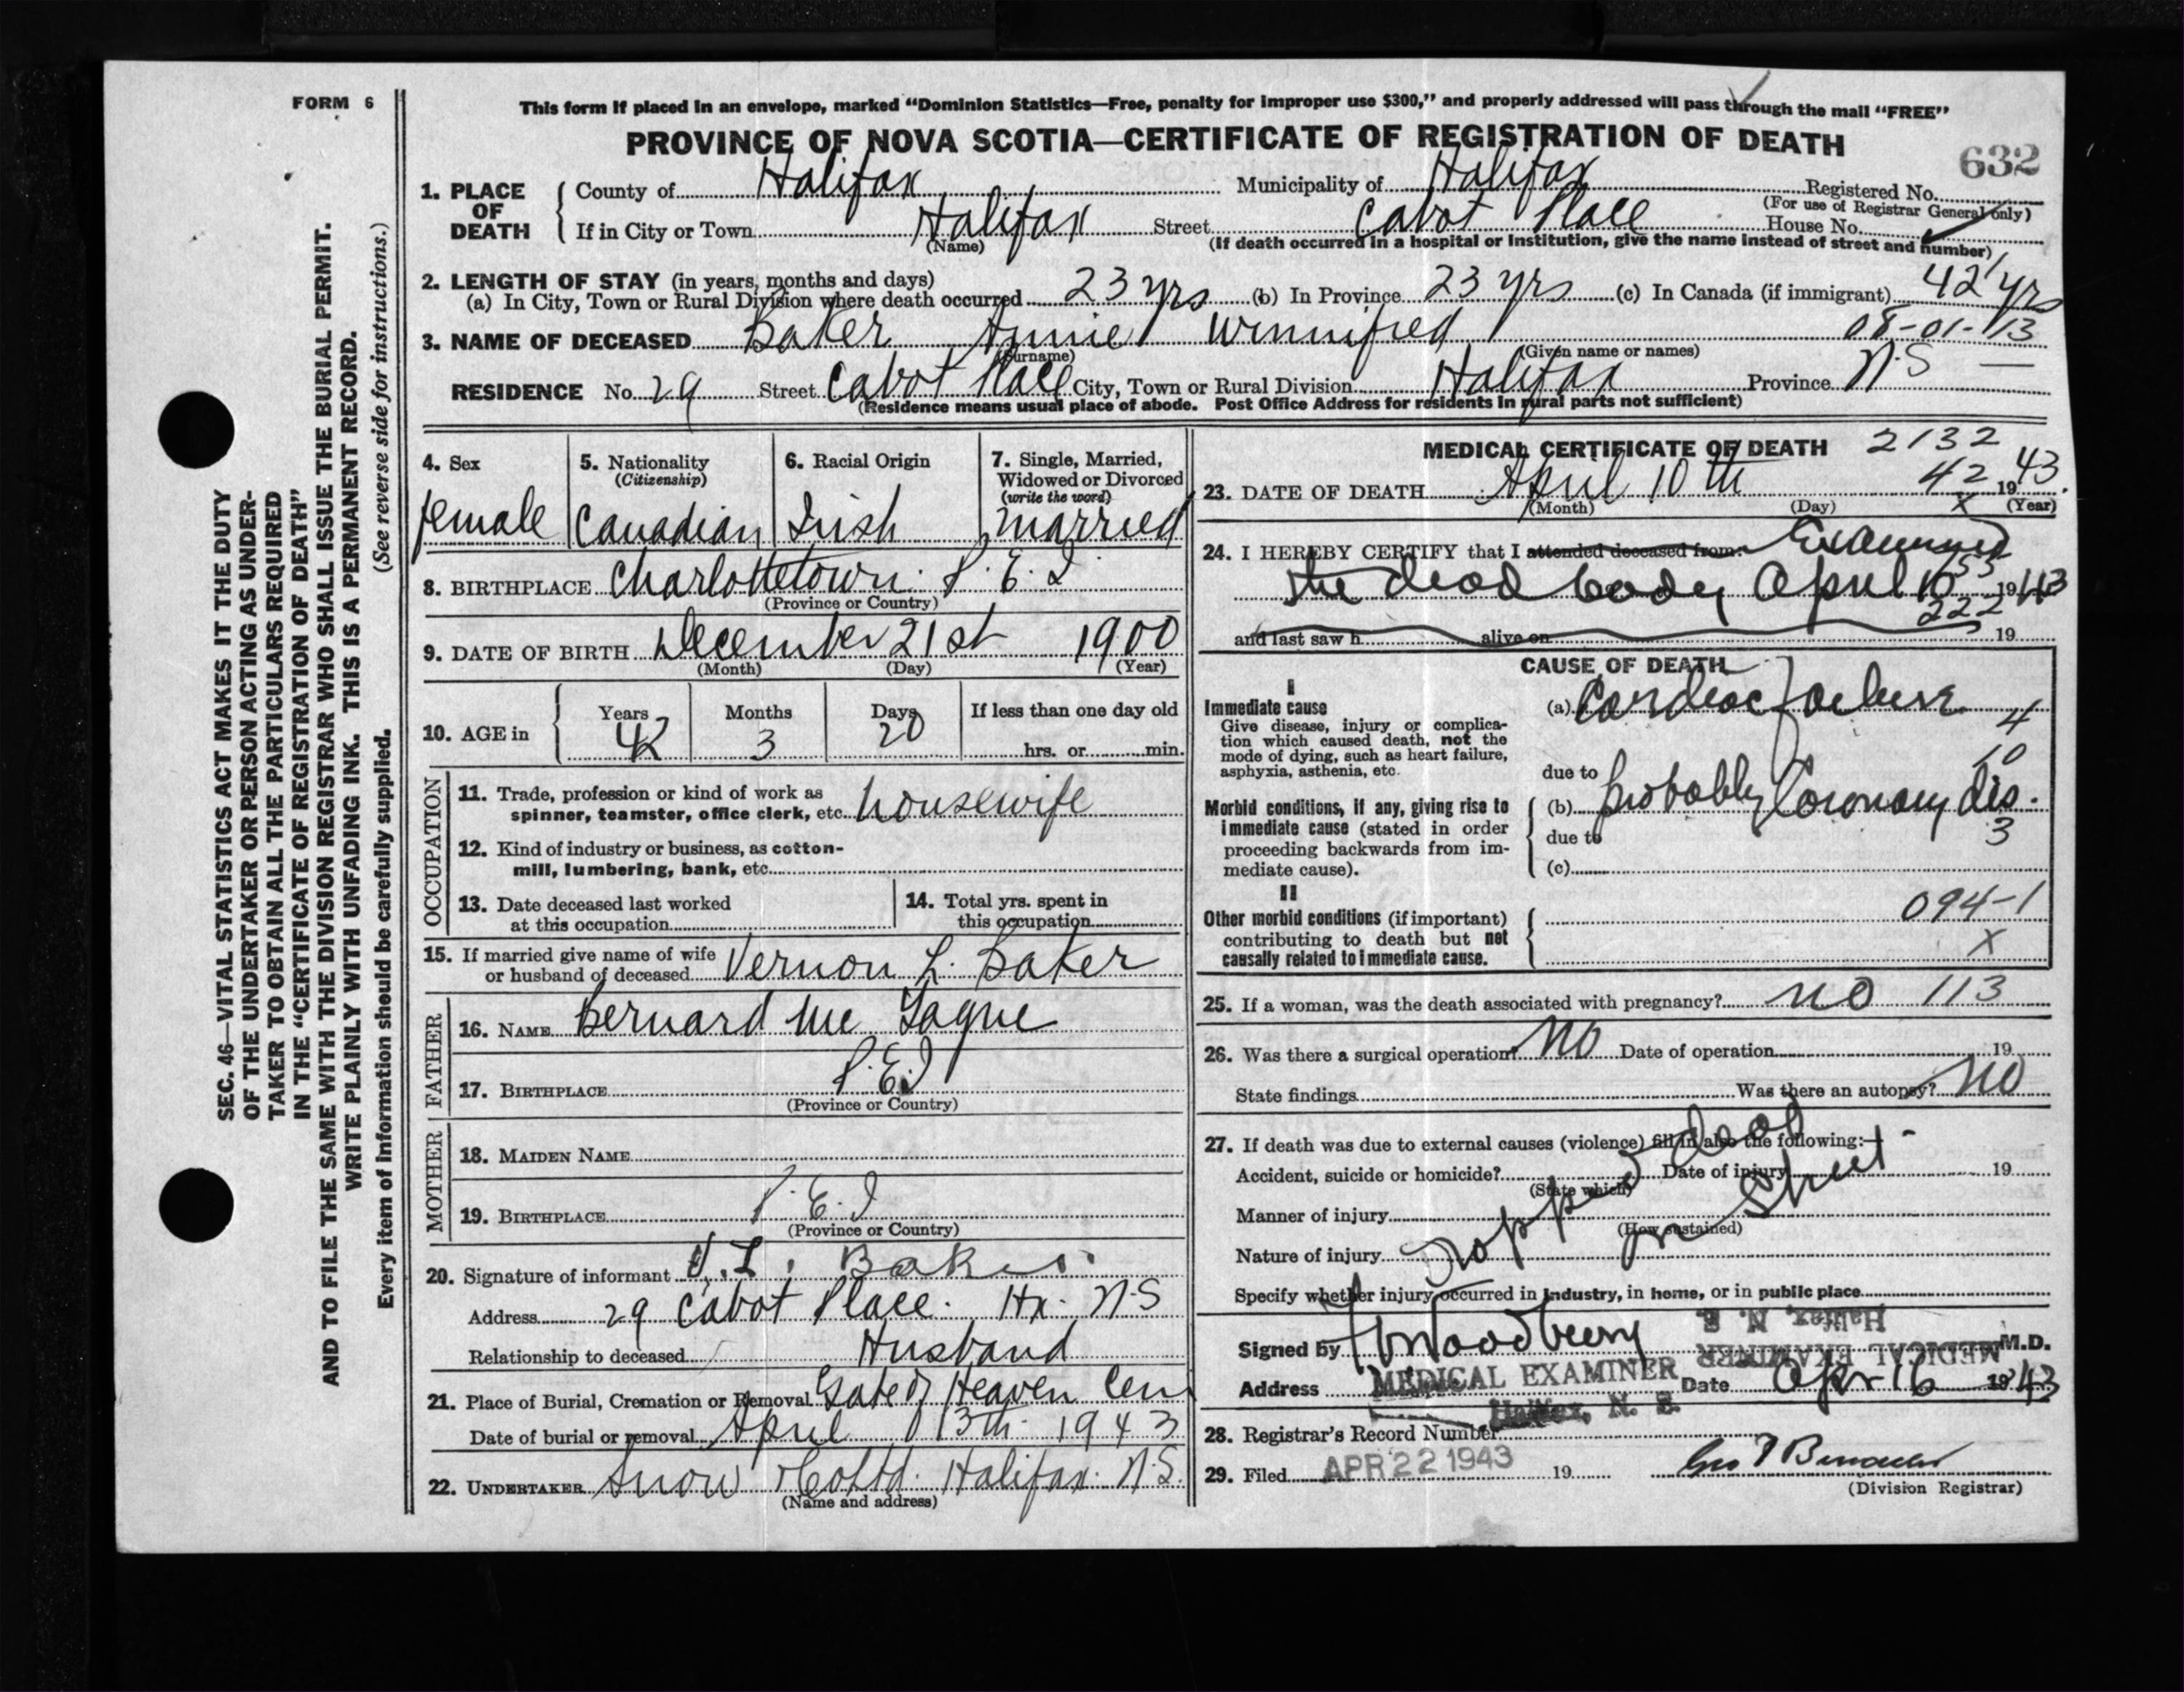 FORM 6
This form if placed in an envelope, marked “Dominion Statistics—Free, penalty for improper use $300,” and properly addressed will pass through the mail “FREE”
PROVINCE OF NOVA SCOTIA—CERTIFICATE OF REGISTRATION OF DEATH
632
1. PLACE OF DEATH County of Halifax Municipality of Halifax Registered No.
(For use of Registrar General only)
If in City or Town Halifax Street Cabot Place House No.
(Name) (If death occurred in a hospital or institution, give the name instead of street and number)
2. LENGTH OF STAY (in years, months and days)
(a) In City, Town or Rural Division where death occurred 23 yrs (b) In Province 23 yrs (c) In Canada (if immigrant) 42 yrs
3. NAME OF DECEASED Baker Annie Winnifred 08-01-13
(Surname) (Given name or names)
RESIDENCE No. 29 Street Cabot Place City, Town or Rural Division Halifax Province N.S —
(Residence means usual place of abode. Post Office Address for residents in rural parts not sufficient)
SEC. 46—VITAL STATISTICS ACT MAKES IT THE DUTY
OF THE UNDERTAKER OR PERSON ACTING AS UNDER-
TAKER TO OBTAIN ALL THE PARTICULARS REQUIRED
IN THE “CERTIFICATE OF REGISTRATION OF DEATH”
AND TO FILE THE SAME WITH THE DIVISION REGISTRAR WHO SHALL ISSUE THE BURIAL PERMIT.
WRITE PLAINLY WITH UNFADING INK. THIS IS A PERMANENT RECORD.
(See reverse side for instructions.)
Every item of information should be carefully supplied.
4. Sex
female
5. Nationality
(Citizenship)
Canadian
6. Racial Origin
Irish
7. Single, Married,
Widowed or Divorced
(write the word)
Married
8. BIRTHPLACE Charlottetown. P. E. I
(Province or Country)
9. DATE OF BIRTH December 21st 1900
(Month) (Day) (Year)
10. AGE in Years 42 Months 3 Days 20 If less than one day old
hrs. or min.
OCCUPATION
11. Trade, profession or kind of work as
spinner, teamster, office clerk, etc. housewife
12. Kind of industry or business, as cotton-
mill, lumbering, bank, etc.
13. Date deceased last worked
at this occupation
14. Total yrs. spent in
this occupation
15. If married give name of wife
or husband of deceased Vernon L. Baker
FATHER
16. NAME Bernard Mc Tague
17. BIRTHPLACE P.E.I
(Province or Country)
MOTHER
18. MAIDEN NAME
19. BIRTHPLACE P. E. I
(Province or Country)
20. Signature of informant V. L. Baker
Address 29 Cabot Place. Hx. N.S
Relationship to deceased Husband
21. Place of Burial, Cremation or Removal Gate of Heaven Cem
Date of burial or removal April 13th 1943
22. UNDERTAKER Snow & Co Ltd. Halifax. N.S.
(Name and address)
MEDICAL CERTIFICATE OF DEATH 2132
23. DATE OF DEATH April 10th 42 1943.
(Month) (Day) X (Year)
24. I HEREBY CERTIFY that I attended deceased from: Examined
the dead body April 10 53 1943
222
and last saw h alive on 19
CAUSE OF DEATH
I
Immediate cause
Give disease, injury or complica-
tion which caused death, not the
mode of dying, such as heart failure,
asphyxia, asthenia, etc.
(a) Cardiac failure 4
10
due to
Morbid conditions, if any, giving rise to
immediate cause (stated in order
proceeding backwards from im-
mediate cause).
(b) probably Coronary dis.
due to 3
(c)
II
Other morbid conditions (if important)
contributing to death but not
causally related to immediate cause.
094-1
X
25. If a woman, was the death associated with pregnancy? no 113
26. Was there a surgical operation? No Date of operation 19
State findings Was there an autopsy? No
27. If death was due to external causes (violence) fill in also the following:—
Accident, suicide or homicide? Date of injury 19
(State which)
Manner of injury
(How sustained)
Nature of injury
Dropped dead
on Street -
Specify whether injury occurred in industry, in home, or in public place
Signed by Woodbury M.D.
MEDICAL EXAMINER
Halifax, N. S.
Address MEDICAL EXAMINER Date Apr 16 1943
Halifax, N. S.
28. Registrar's Record Number
29. Filed APR 22 1943 19
(Division Registrar)